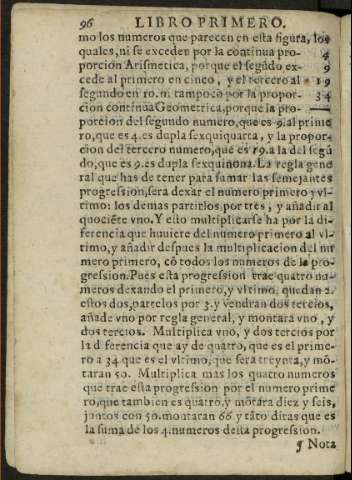 96 LIBRO PRIMERO.
mo los numeros que parecen en esta figura, los
quales, ni se exceden por la continua pro- 4
porcion Arismetica, porque el segũdo ex- 9
cede al primero en cinco, y el tercero al 19
segundo en 10. ni tampoco por la propor- 34
cion continua Geometrica, porque la pro-
porcion del segundo numero, que es 9. al prime
ro, que es 4. es dupla sexquiquarta, y la propor-
cion del tercero numero, que es 19. a la del segũ
do, que es 9. es dupla sexquinona. La regla gene
ral que has de tener para sumar las semejantes
progression, sera dexar el numero primero y vl-
timo: los demas partirlos por tres, y añadir al
quociẽte vno. Y esto multiplicarse ha por la di-
ferencia que huuiere del numero primero al vl-
timo, y añadir despues la multiplicacion del nu
mero primero, cõ todos los numeros de la pro-
gression. Pues esta progression trae quatro nu-
meros dexando el primero, y vltimo, quedan 2.
estos dos, partelos por 3. y vendran dos tercios,
añade vno por regla general, y montara vno, y
dos tercios. Multiplica vno, y dos tercios por
la diferencia que ay de quatro, que es el prime-
ro a 34. que es el vltimo, que sera treynta, y mõ-
taran 50. Multiplica mas los quatro numeros
que trae esta progression por el numero prime
ro, que tambien es quatro, y mõtara diez y seis,
juntos con 50. montaran 66. y tãto diras que es
la suma de los 4. numeros desta progression.
¶ Nota